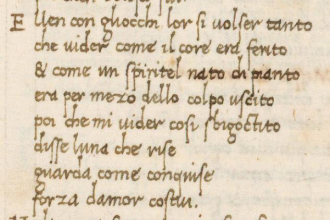 E llen con gliocchi lor si volser tanto
che vider come il core era ferito
& come un spiritel nato di pianto
era per mezo dello colpo uscito
poi che mi vider cosi sbigottito
disse luna che rise
guarda come conquise
forza damor costui.